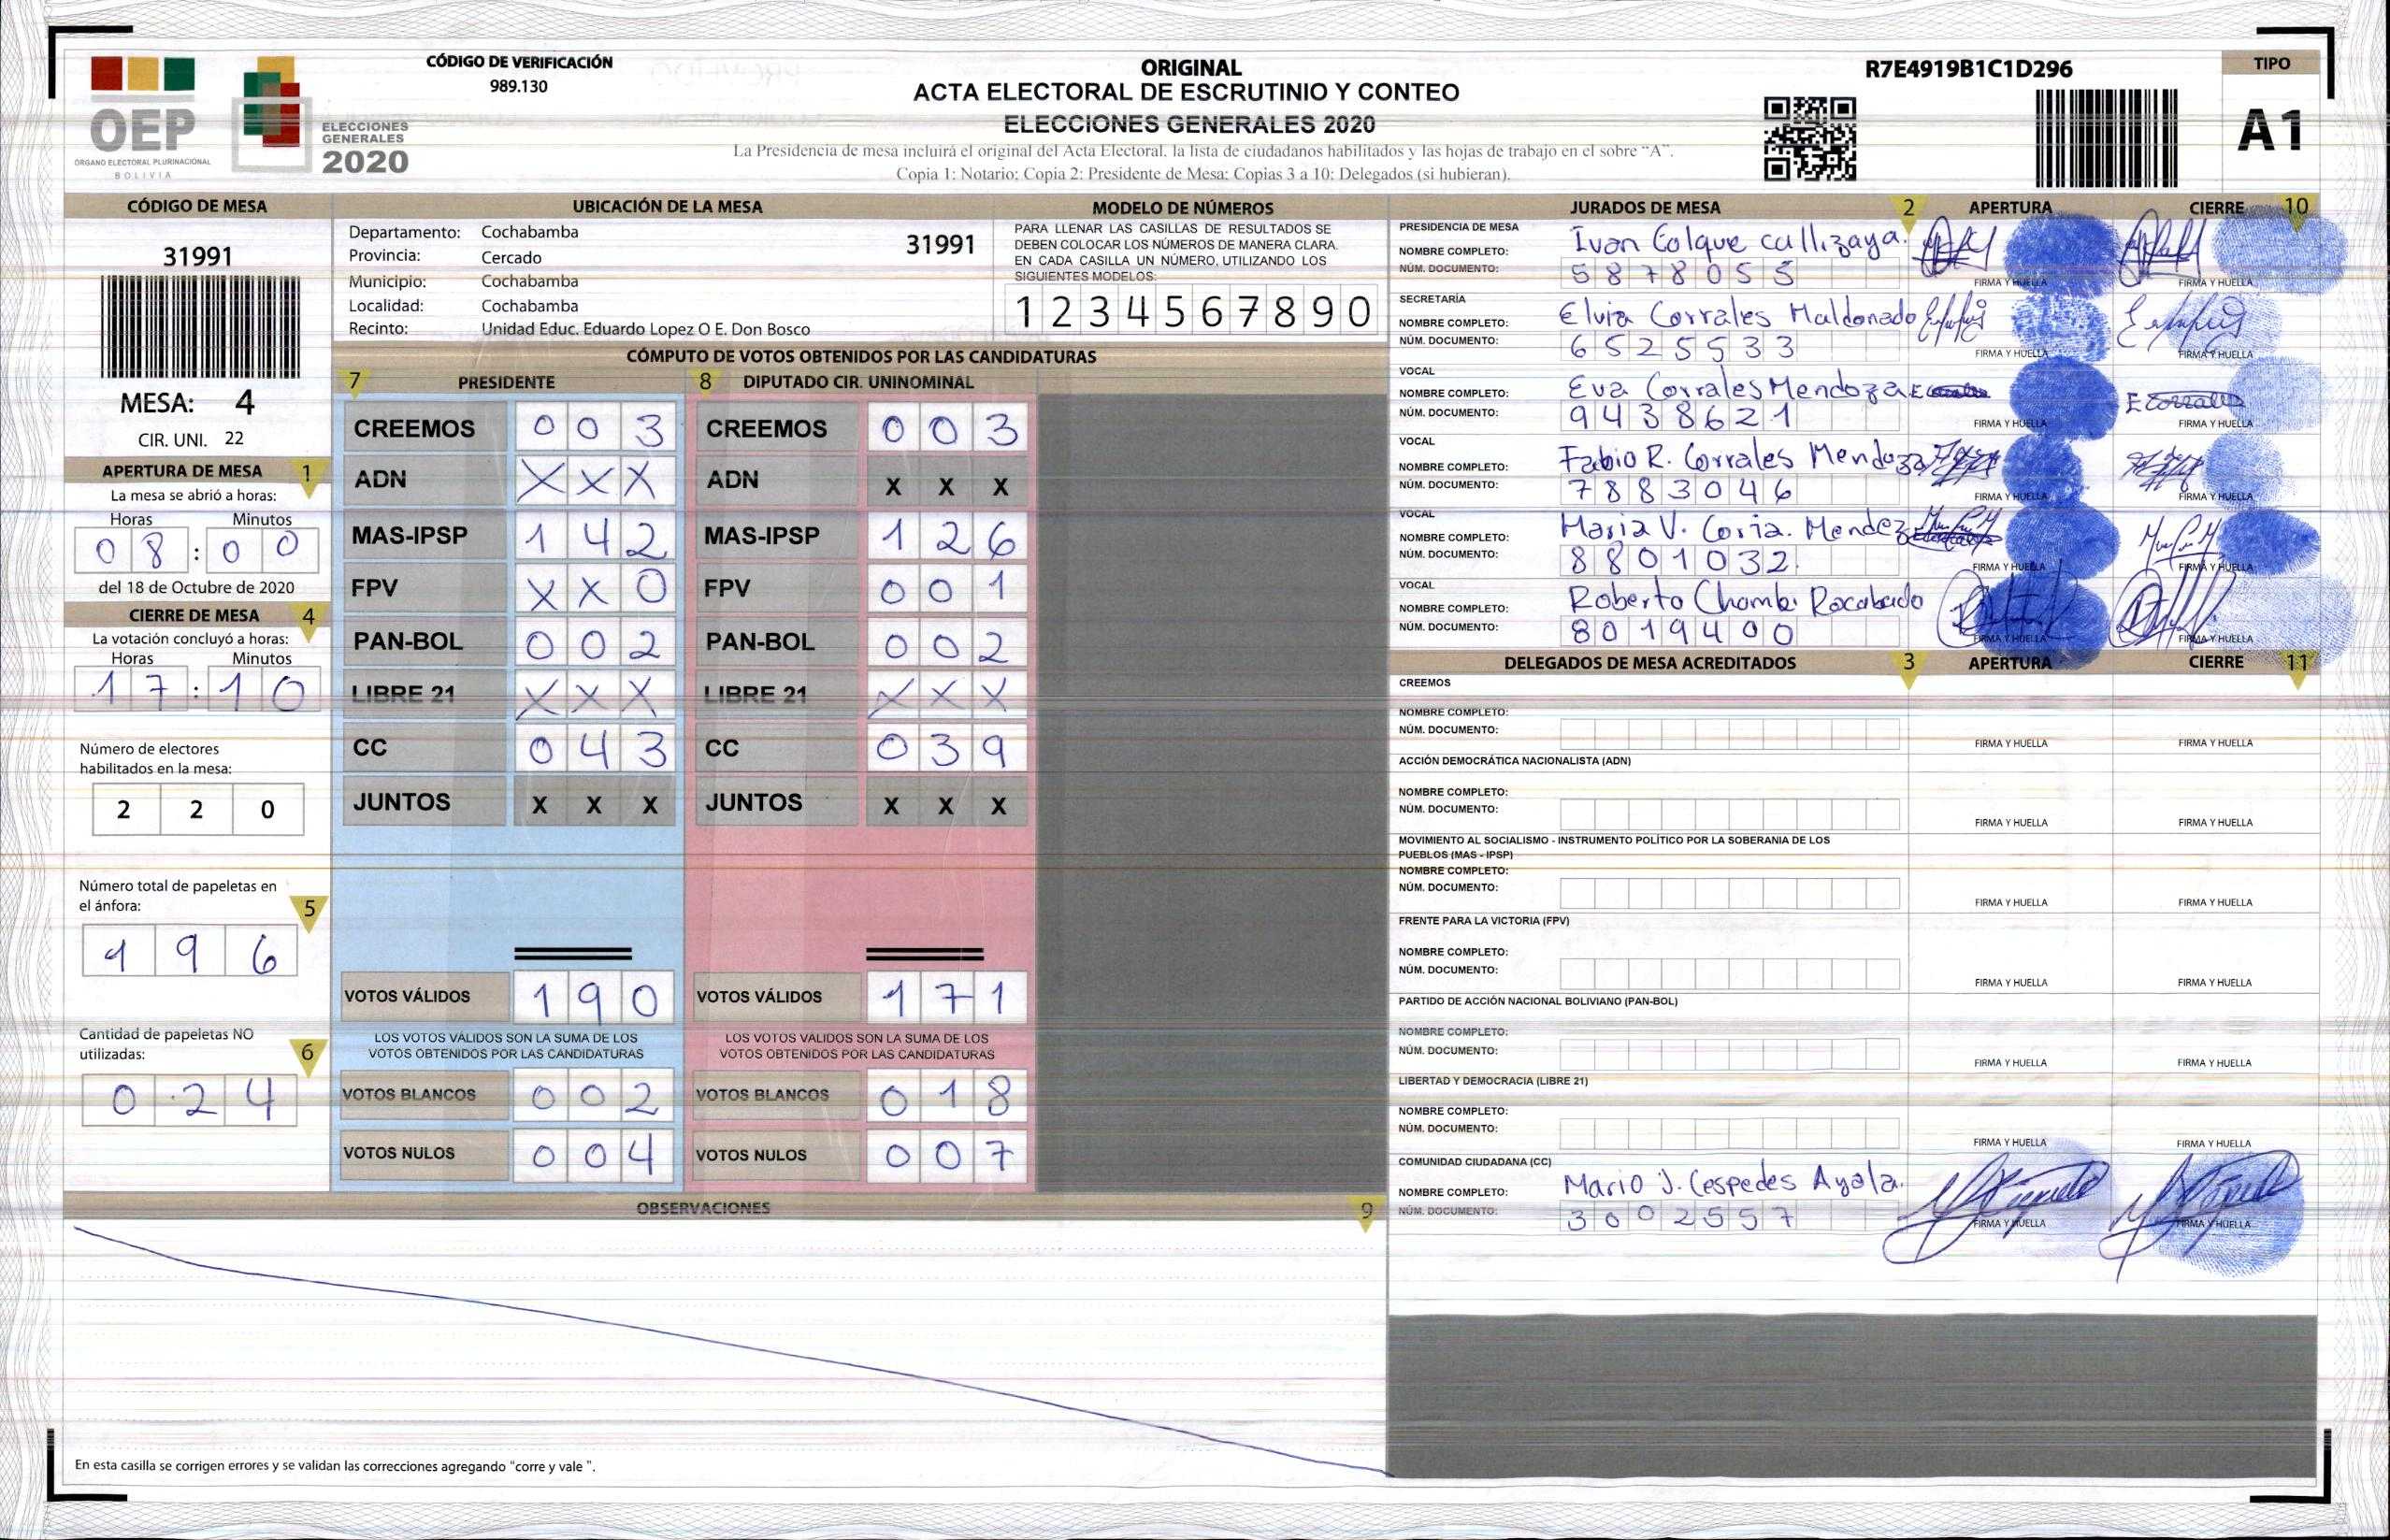 OEP
ÓRGANO ELECTORAL PLURINACIONAL
BOLIVIA
ELECCIONES
GENERALES
2020
CÓDIGO DE VERIFICACIÓN
989.130
ORIGINAL
ACTA ELECTORAL DE ESCRUTINIO Y CONTEO
ELECCIONES GENERALES 2020
La Presidencia de mesa incluirá el original del Acta Electoral, la lista de ciudadanos habilitados y las hojas de trabajo en el sobre “A”.
Copia 1: Notario; Copia 2: Presidente de Mesa; Copias 3 a 10: Delegados (si hubieran).
R7E4919B1C1D296
TIPO
A1
CÓDIGO DE MESA
31991
MESA: 4
CIR. UNI. 22
APERTURA DE MESA 1
La mesa se abrió a horas:
Horas Minutos
08:00
del 18 de Octubre de 2020
CIERRE DE MESA 4
La votación concluyó a horas:
Horas Minutos
17:10
Número de electores
habilitados en la mesa:
2 2 0
Número total de papeletas en
el ánfora: 5
1 9 6
Cantidad de papeletas NO
utilizadas: 6
0 2 4
UBICACIÓN DE LA MESA
Departamento: Cochabamba
31991
Provincia: Cercado
Municipio: Cochabamba
Localidad: Cochabamba
Recinto: Unidad Educ. Eduardo Lopez O E. Don Bosco
MODELO DE NÚMEROS
PARA LLENAR LAS CASILLAS DE RESULTADOS SE
DEBEN COLOCAR LOS NÚMEROS DE MANERA CLARA.
EN CADA CASILLA UN NÚMERO, UTILIZANDO LOS
SIGUIENTES MODELOS:
1 2 3 4 5 6 7 8 9 0
CÓMPUTO DE VOTOS OBTENIDOS POR LAS CANDIDATURAS
7 PRESIDENTE 8 DIPUTADO CIR. UNINOMINAL
CREEMOS 0 0 3 CREEMOS 0 0 3
ADN X X X ADN X X X
MAS-IPSP 1 4 2 MAS-IPSP 1 2 6
FPV X X 0 FPV 0 0 1
PAN-BOL 0 0 2 PAN-BOL 0 0 2
LIBRE 21 X X X LIBRE 21 X X X
CC 0 4 3 CC 0 3 9
JUNTOS X X X JUNTOS X X X
VOTOS VÁLIDOS 1 9 0 VOTOS VÁLIDOS 1 7 1
LOS VOTOS VÁLIDOS SON LA SUMA DE LOS LOS VOTOS VÁLIDOS SON LA SUMA DE LOS
VOTOS OBTENIDOS POR LAS CANDIDATURAS VOTOS OBTENIDOS POR LAS CANDIDATURAS
VOTOS BLANCOS 0 0 2 VOTOS BLANCOS 0 1 8
VOTOS NULOS 0 0 4 VOTOS NULOS 0 0 7
OBSERVACIONES 9
En esta casilla se corrigen errores y se validan las correcciones agregando “corre y vale ”.
JURADOS DE MESA 2 APERTURA CIERRE 10
PRESIDENCIA DE MESA
NOMBRE COMPLETO: Ivan Colque callizaya.
NÚM. DOCUMENTO: 5878055
FIRMA Y HUELLA FIRMA Y HUELLA
SECRETARÍA
NOMBRE COMPLETO: Elvia Corrales Maldonado
NÚM. DOCUMENTO: 6525533
FIRMA Y HUELLA FIRMA Y HUELLA
VOCAL
NOMBRE COMPLETO: Eva Corrales Mendoza
E Corrales
NÚM. DOCUMENTO: 9438621
FIRMA Y HUELLA FIRMA Y HUELLA
VOCAL
NOMBRE COMPLETO: Fabio R. Corrales Mendoza
NÚM. DOCUMENTO: 7883046
FIRMA Y HUELLA FIRMA Y HUELLA
VOCAL
NOMBRE COMPLETO: Maria V. Coria. Mendez
NÚM. DOCUMENTO: 8801032
FIRMA Y HUELLA FIRMA Y HUELLA
VOCAL
NOMBRE COMPLETO: Roberto Chambi Racabado
NÚM. DOCUMENTO: 8019400
FIRMA Y HUELLA FIRMA Y HUELLA
DELEGADOS DE MESA ACREDITADOS 3 APERTURA CIERRE 11
CREEMOS
NOMBRE COMPLETO:
NÚM. DOCUMENTO:
FIRMA Y HUELLA FIRMA Y HUELLA
ACCIÓN DEMOCRÁTICA NACIONALISTA (ADN)
NOMBRE COMPLETO:
NÚM. DOCUMENTO:
FIRMA Y HUELLA FIRMA Y HUELLA
MOVIMIENTO AL SOCIALISMO - INSTRUMENTO POLÍTICO POR LA SOBERANIA DE LOS
PUEBLOS (MAS - IPSP)
NOMBRE COMPLETO:
NÚM. DOCUMENTO:
FIRMA Y HUELLA FIRMA Y HUELLA
FRENTE PARA LA VICTORIA (FPV)
NOMBRE COMPLETO:
NÚM. DOCUMENTO:
FIRMA Y HUELLA FIRMA Y HUELLA
PARTIDO DE ACCIÓN NACIONAL BOLIVIANO (PAN-BOL)
NOMBRE COMPLETO:
NÚM. DOCUMENTO:
FIRMA Y HUELLA FIRMA Y HUELLA
LIBERTAD Y DEMOCRACIA (LIBRE 21)
NOMBRE COMPLETO:
NÚM. DOCUMENTO:
FIRMA Y HUELLA FIRMA Y HUELLA
COMUNIDAD CIUDADANA (CC)
NOMBRE COMPLETO: Mario J. Cespedes Ayala.
NÚM. DOCUMENTO: 3002557
FIRMA Y HUELLA FIRMA Y HUELLA